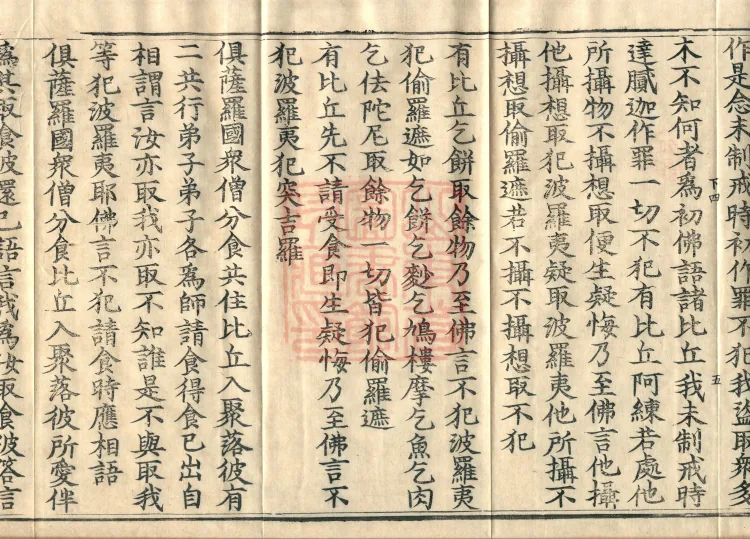 作是念未制戒時初作罪不犯我盜取衆多
木不知何者爲初佛語諸比丘我未制戒時
達膩迦作罪一切不犯有比丘阿練若處他
所攝物不攝想取便生疑悔乃至佛言他攝
他攝想取犯波羅夷疑取波羅夷他所攝不
攝想取偷羅遮若不攝不攝想取不犯
下四
五
有比丘乞餅取餘物乃至佛言不犯波羅夷
犯偷羅遮如乞餅乞麨乞鳩樓摩乞魚乞肉
乞佉陀尼取餘物一切皆犯偷羅遮
有比丘先不請受食即生疑悔乃至佛言不
犯波羅夷犯突吉羅
俱薩羅國衆僧分食共住比丘入聚落彼有
二共行弟子弟子各爲師請食得食已出自
相謂言汝亦取我亦取不知誰是不與取我
等犯波羅夷耶佛言不犯請食時應相語
俱薩羅國衆僧分食比丘入聚落彼所愛伴
爲其取食彼還已語言我爲汝取食彼答言